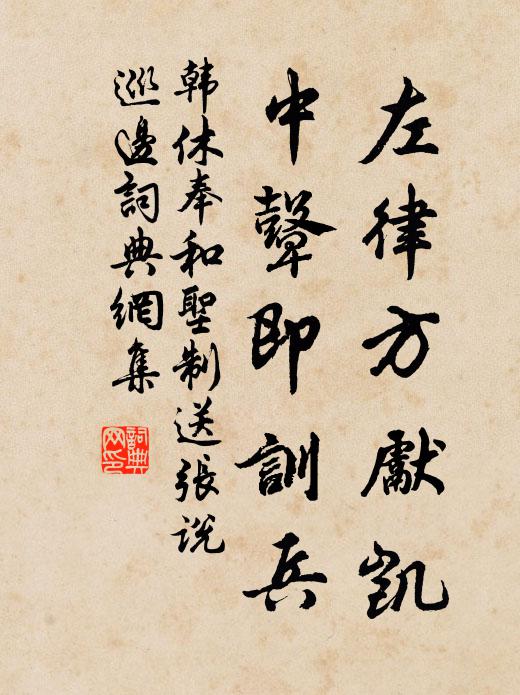 左律方獻凱
中鼙即訓兵
韓休奉和聖制送張說
巡邊詞典網集
詞典
网印